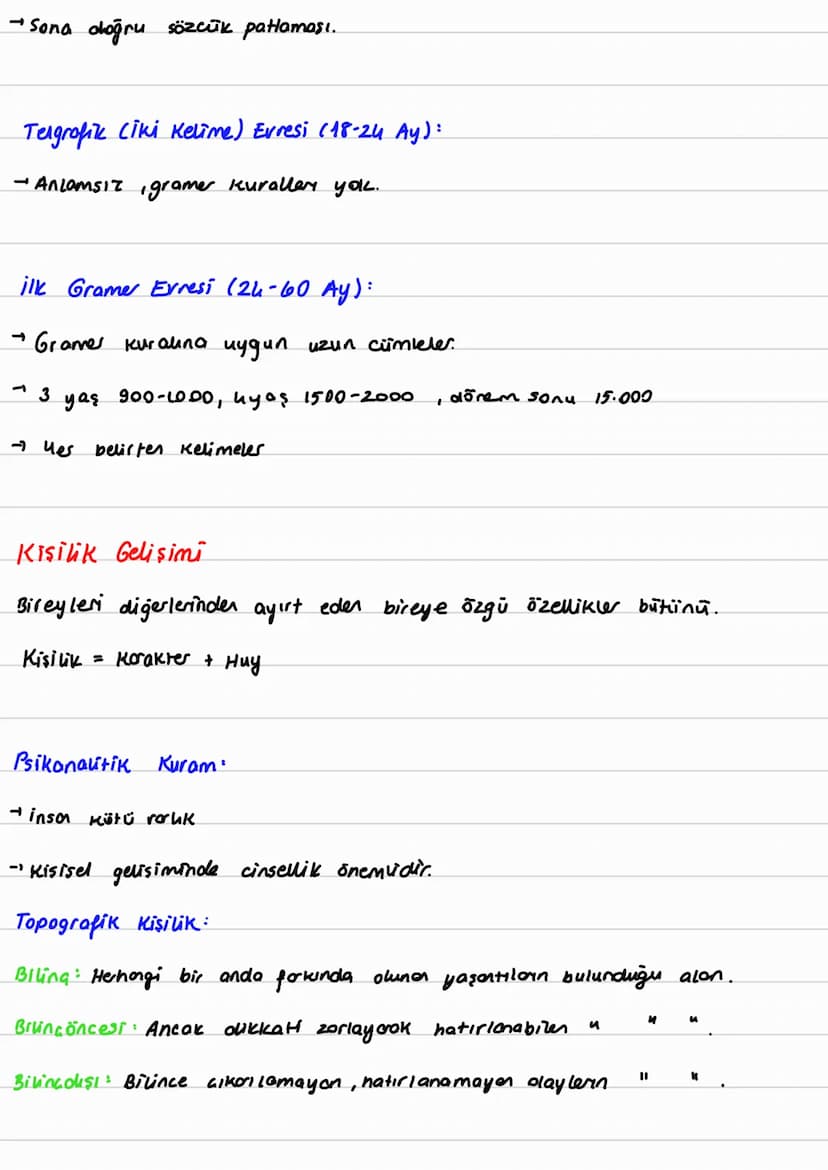 → Sona doğru sözcük patlaması.
Telgrafik (İki Kelime) Evresi (18-24 Ay):
→ Anlamsız, gramer kuralları yok.
İlk Gramer Evresi (24-60 Ay):
→ Gramer kuralına uygun uzun cümleler.
→ 3 yaş 900-1000, 4 yaş 1500-2000, dönem sonu 15.000
→ Yer belirten kelimeler
Kişilik Gelişimi
Bireyleri diğerlerinden ayırt eden bireye özgü özellikler bütünü.
Kişilik = Karakter + Huy
Psikanalitik Kuram:
→ İnsan kötü varlık
→ Kişisel gelişiminde cinsellik önemlidir.
Topografik Kişilik:
Bilinç: Herhangi bir anda farkında olunan yaşantıların bulunduğu alan.
Bilinçöncesi: Ancak dikkati zorlayarak hatırlanabilen " " ".
Bilinçdışı: Bilince çıkarılamayan, hatırlanamayan olayların " ".